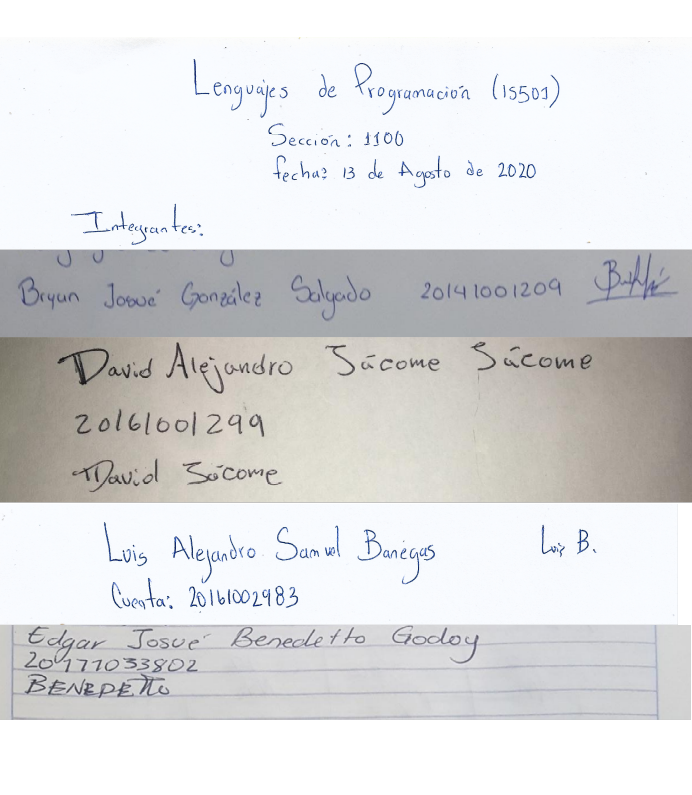 Lenguajes de Programación (IS501)
Sección: 1100
fecha: 13 de Agosto de 2020
Integrantes:
Bryan Josué González Salgado 20141001209
David Alejandro Jácome Jácome
20161001299
David Jácome
Luis Alejandro Samuel Banegas Luis B.
Cuenta: 20161002983
Edgar Josué Benedetto Godoy
20171033802
BENEDETTO